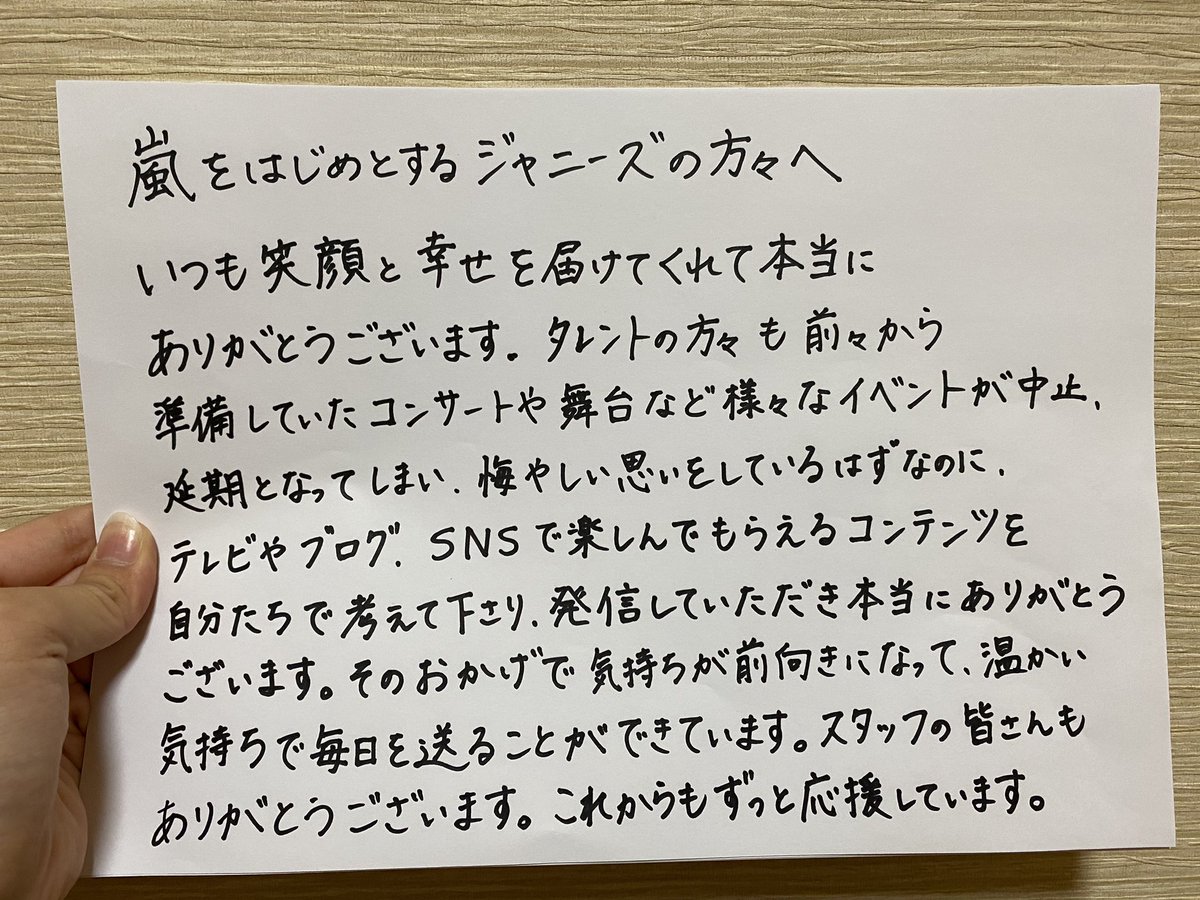 嵐をはじめとするジャニーズの方々へ
いつも笑顔と幸せを届けてくれて本当に
ありがとうございます。タレントの方々も前々から
準備していたコンサートや舞台など様々なイベントが中止、
延期となってしまい、悔やしい思いをしているはずなのに、
テレビやブログ、SNSで楽しんでもらえるコンテンツを
自分たちで考えて下さり、発信していただき本当にありがとう
ございます。そのおかげで気持ちが前向きになって、温かい
気持ちで毎日を送ることができています。スタッフの皆さんも
ありがとうございます。これからもずっと応援しています。